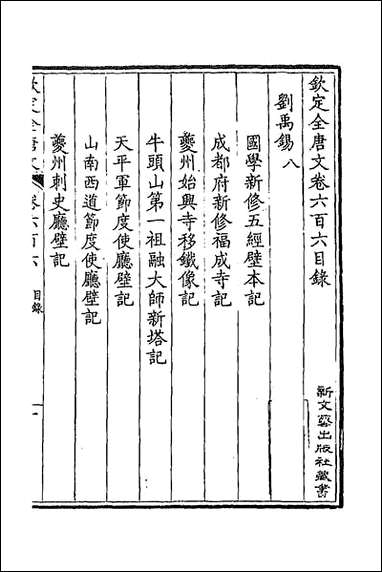 欽定全唐文卷六百六目錄
劉禹錫八
國學新修五經壁本記
成都府新修福成寺記
夔州始興寺移鐵像記
牛頭山第一祖融大師新塔記
天平軍節度使廳壁記
山南西道節度使廳壁記
夔州刺史廳壁記
欽定全唐文 卷六百六 目錄 一
新文藝出版社藏書